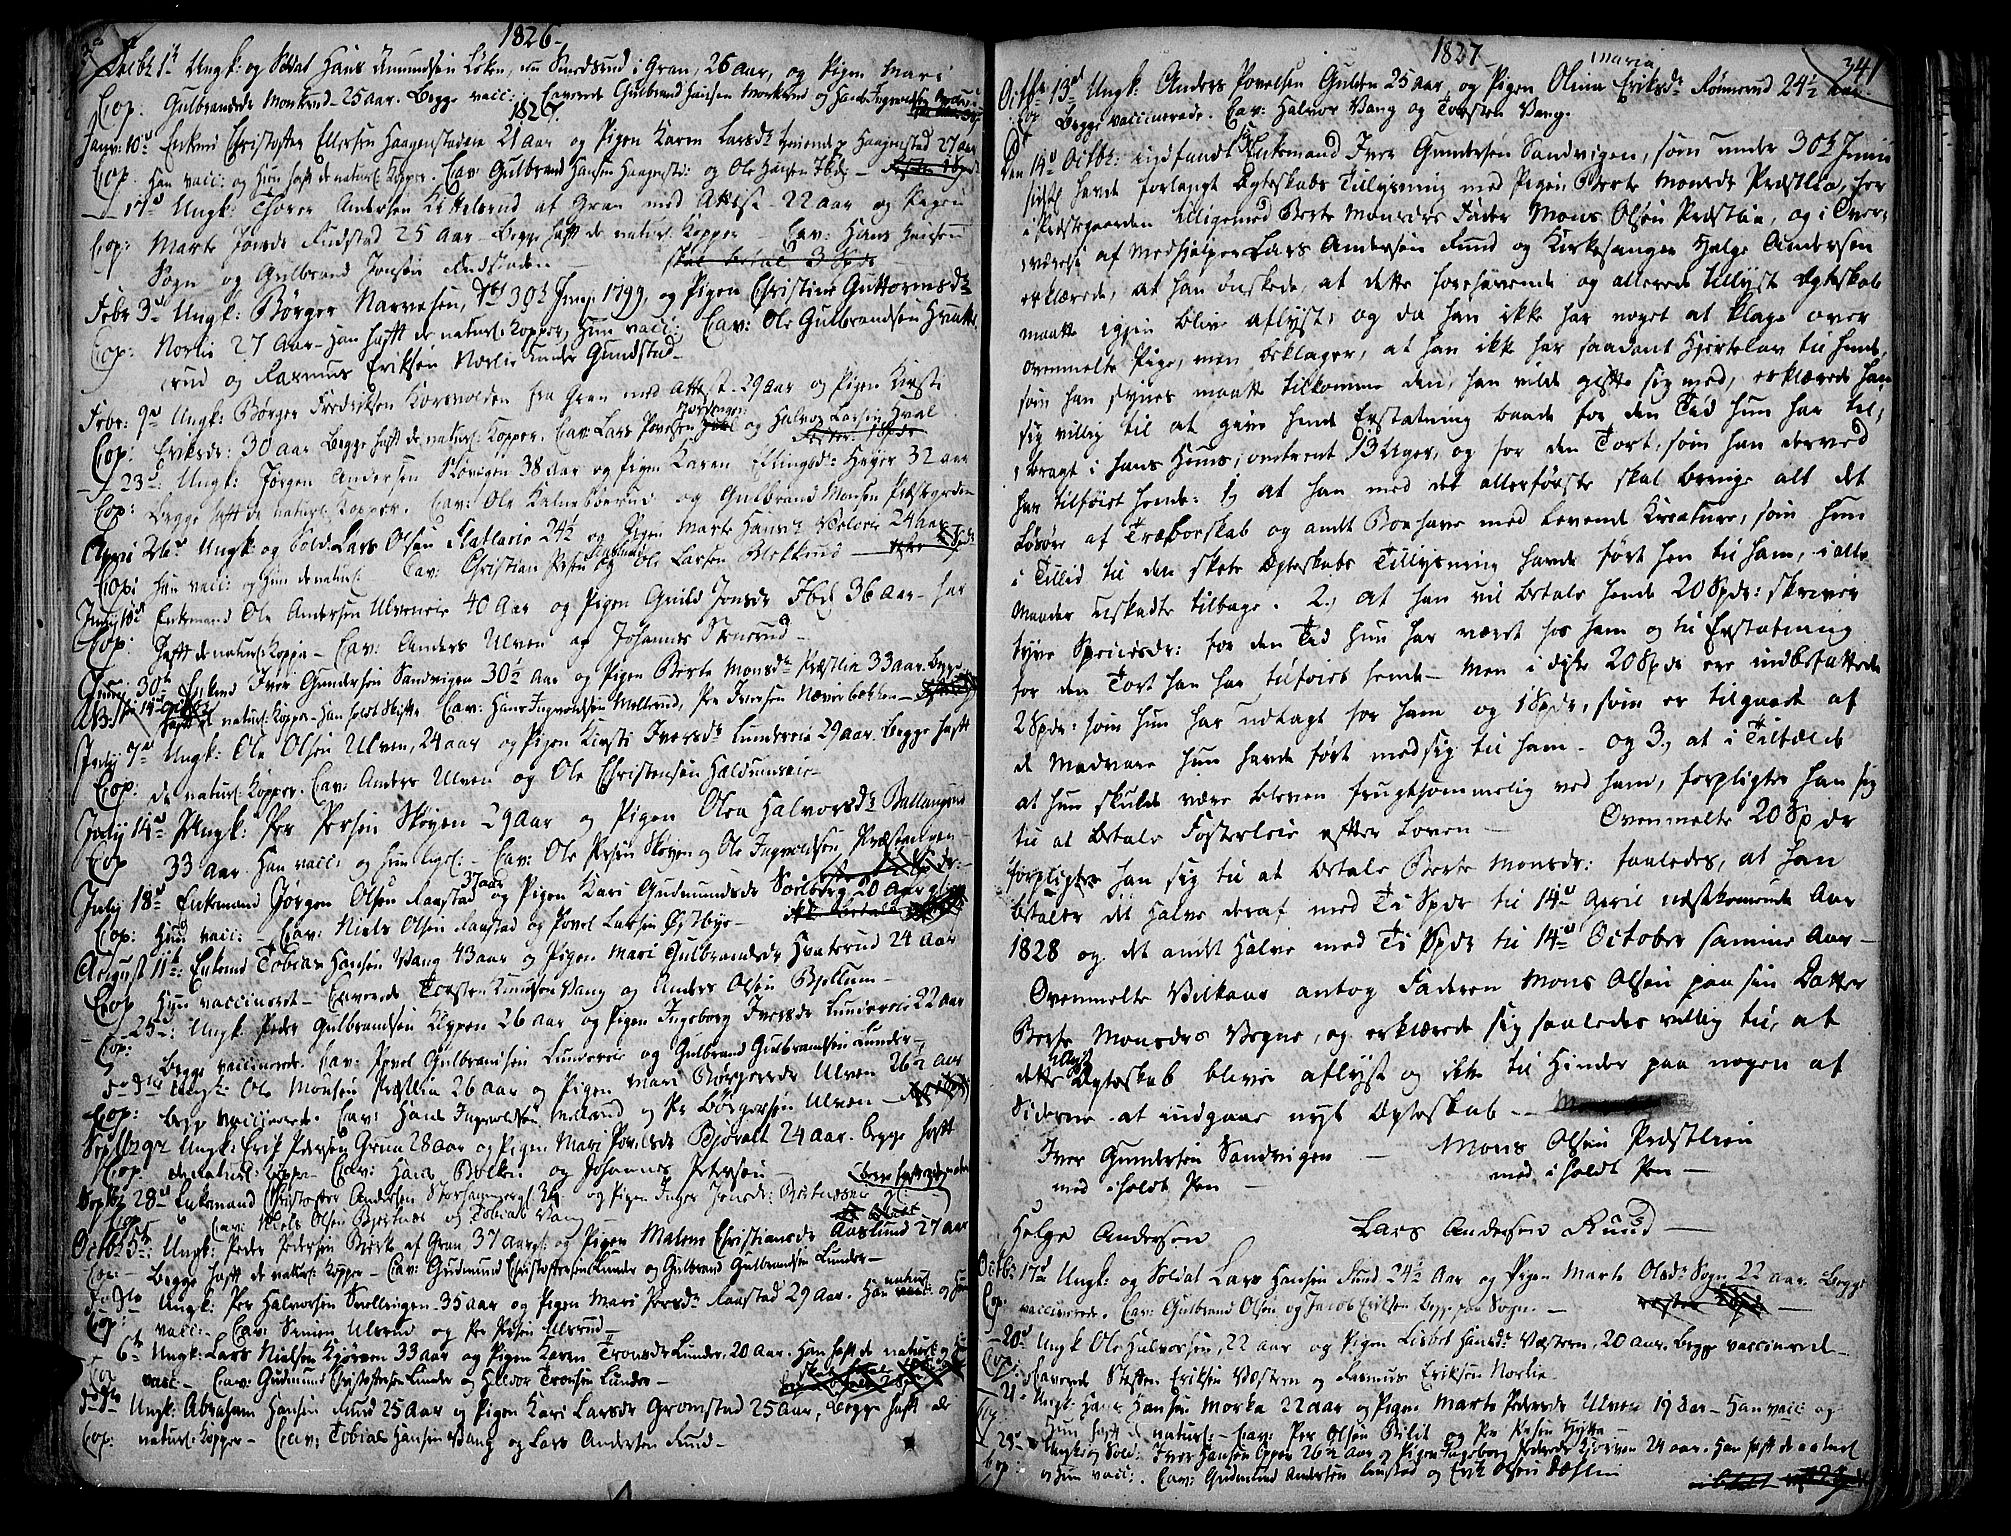 1826
Decbr 1ste Ungk: og Soldat Hans Amundsen Løken, nu Smedsrud i Gran, 26 aar, og Pigen Mari
Cop: Gulbrandsdr Monkrud 25 aar. Begge vacc: Caverede Gulbrand Hansen Monkrud og Hans Ingvoldsen
1827.
Janv: 10de Enkem: Christopher Ellefsen Haagenstaden 21 aar og Pigen Karen Larsdr tjenende p Haagenstad 27 aar
Cop. Han vacc: og Hun haft de naturl. Kopper. Cav: Gulbrand Hansen Haagenst: og Ole Hansen Ibd:
17de Ungk: Thorer Andersen Kittelsrud af Gran med Attest 22 aar og Pigen
Cop: Marte Jonsdr Rudstad 25 aar Begge haft de naturl. Kopper Cav: Hans Hansen
Sogn og Gulbrand Jonsen Rudstaden skal betal 3 Spdr
Febr 3de Ungk: Børger Narvesen, dbt 30te Junij 1799, og Pigen Christine Guttormsdr
Cop: Norlie 27 Aar. Han haft de naturl. Kopper, Hun vacc: Cav: Ole Gulbrandsen Hvatte
rud og Rasmus Eriksen Norlie under Grindstad
Febr: 9de Ungk: Børger Fredriksen Korsvolden fra Gran med Attest 29 aar og Pigen Kirsti
Cop: Eriksdr: 30 aar Begge haft de naturl. Kopper. Cav: Lars Povelsen og Halvor Larsen Hval
23de: Ungk: Jørgen Andersen Skovigen 38 aar og Pigen Karen Ellingsdr: Høyer 32 aar
Cop: Begge haft de naturl. Kopper. Cav: Ole og Gulbrand Monsen Præstgorden
April 26de Ungk og Sold: Lars Olsen Flatlarie 24½ og Pigen Marte Hansdr 24 aar
Cop: Han vacc: og Hun de naturl. Cav: Christian og Ole Larsen Blekkrud
Junij 16de Enkemand Ole Andersen Ulvenie 40 Aar og Pigen Guild Jonsdr Ibd: 36 aar har
Cop: haft de naturl. Kopper Cav: Anders Ulven og Johannes Stensrud
Junij 30te Enkmd Iver Gundersen Sandvigen 30½ Aar og Pigen Berte Monsdr Præstlia 33 aar. Begge
naturl. Kopper Han holdt Skifte Cav: Hans Ingvoldsen Melbrud, Per Iversen Næverbekken
July 7de Ungk: Ole Olsen Ulven, 24 aar og Pigen Kirsti Iversdr Lunderie 29 aar. Begge haft
Cop: de naturl: Kopper. Cav: Anders Ulven og Ole Christensen Haldumseie
July 14de Ungk: Per Persen Skøyen 29 aar og Pigen Olea Halvorsdr Ballangrud
Cop 33 aar. Han vacc: og Hun lige: Cav: Ole Persen Skøyen og Ole Ingvoldsen Præstulven
July 18de Enkemand Jørgen Olsen Raastad 37 aar og Pigen Kari Gudmundsdr Solberg 20 Aar
Cop: Hun vacc: Cav: Niels Olsen Raastad og Povel Larsen
August 11te: Enkemd Tobias Hansen Vang 43 aar og Pigen Mari Gulbrandsdr Hvaterud 24 Aar
Cop Hun vaccineret Caverede Torsten Knudsen Vang og Anders Olsen Bjellum
25de: Ungk: Peder Gulbrandsen Kippen 26 aar og Pigen Ingeborg Iversdr Lunderie 22 aar
Cop: Begge vaccinerede. Cav: Povel Gulbrandsen Lunderie og Gulbrand Gulbrandsen Lunder
do do Ungk: Ole Monsen Præstlia 26 aar og Pigen Mari Børgersdr Ulven 26½ aar
Cop: begge vaccinerede. Cav: Hans Ingvoldsen Melbrud og Per Børgersen Ulven
Septbr 29de Ungk: Erik Pedersen Gruna 28 aar og Pigen Mari Povelsdr Bjøralt 24 aar. begge haft
Cop: de naturl: Kopper Cav: Hans Bolken og Johannes Petersen
Septbr 28de Enkemand Christopher Andersen Storhammer og Pigen Inger Jensdr:
Cop Cav: Niels Olsen Bjertnes og Tobias Vang
Octbr 5te: Ungk: Peder Pedersen Bjerke af Gran 37 aar og Pigen Malene Christiansdr Aaslund 27 aar
Cop: Begge haft de naturl: Kopper Cav: Gudmund Christophersen Lunder og Gulbrand Gulbrandsen Lunder
do do Ungk: Per Halvorsen Velleigen 35 aar og Pigen Mari Persdr Raastad 29 aar. Han naturl: og Hun
Cop: vacc: Cav: Simen Ulsrud og Per Persen Ulsrud
6te Ungk: Lars Nielsen Kjørven 33 aar og Pigen Karen Tronsdr Lunder, 20 Aar. Han haft de naturl: og Hun
Cop vacc: Cav: Gudmund Christophersen Lunder og Halvor Tronsen Lunder
do do Ungk: Abraham Hansen Rud 25 Aar og Pigen Kari Larsdr Gromstad 25 aar, Begge haft de
Cop: naturl: Kopper Cav: Tobias Hansen Vang og Lars Andersen Rud
1827
341
Octbr 13de Ungk: Anders Povelsen Gulden 25 aar, og Pigen Olina Maria Eriksdr Rønnerud 24½ aar
Cop Begge vaccinerede. Cav: Halvor Vang og Torsten Vang.
Den 14de Octbr: indfandt sig Enkemand Iver Gundersen Sandvigen, som under 30te Junii
sidstl. havde forlangt Ægteskabs Tillysning med Pigen Berte Monsdr Præstlia, her
i Præstegaarden tilligemed Berte Monsdrs Fader Mons Olsen Præstlia, og i Over-
værelse af Medhjelper Lars Andersen Ruud og Kirkesanger Helge Andersen
erklærede, at han ønskede, at dette forehavende og allerede tillyste Ægteskab
maatte igjen blive aflyst; og da han ikke har noget at klage over
ovenmelte Pige, men beklager, at han ikke har saadant Hjertelav til hende,
som han synes maatte tilkomme den, han vilde gifte sig med, erklærede han
sig villig til at give hende Erstatning baade for den Tid hun har til-
bragt i hans Huus, omtrent 13 Uger, og for den Tort, som han derved
har tilføiet hende: 1) at han med det allerførste skal bringe alt det
Løsøre af Træborskab og andt Bohave med levende Kreature, som hun
i Tillid til den skete Ægteskabs Tillysning havde ført hen til ham, i alle
Maader uskadte tilbage. 2) at han vil betale hende 20 Spdr: skriver
tyve Speciesdr: for den Tid hun har været hos ham og til Erstatning
for den Tort han har tilføiet hende Men i disse 20 Spdr ere indbefattede
2 Spdr: som hun har udlagt for ham og 1 Spdr, som er tilgaaet af
de Madvare hun havde ført med sig til ham og 3) at i Tilfælde
at hun skulde være bleven frugtsommelig ved ham, forpligter han sig
til at betale Fosterleie efter Loven Ovenmelte 20 Spdr
forpligter han sig til at betale Berte Monsdr: saaledes, at han
betaler det halve deraf med Ti Spdr til 14de April næstkommende Aar
1828 og det andt halve med Ti Spdr til 14de October samme Aar
Ovenmelte Vilkaar antog Faderen Mons Olsen paa sin Datter
Berte Monsdrs Vegne, og erklærede sig saaledes villig til, at
dette tillyste Ægteskab bliver aflyst og ikke til Hinder paa nogen af
Siderne at indgaae nyt Ægteskab
Iver Gundersen Sandvigen Mons Olsen Præstlien
med iholdt Pen med iholdt Pen
Helge Andersen Lars Andersen Ruud
Octbr 17de Ungk: og Soldat Lars Hansen Rud 24½ Aar og Pigen Marte Olsdr Sogn 22 aar. Begge
Cop: vaccinerede. Cav: Gulbrand Olsen og Jacob Eriksen Begge paa Sogn.
20de Ungk Ole Halvorsen, 22 aar og Pigen Lisbet Hansdr Væstern, 20 aar. begge vaccinerede
Cop: Caverede Steffen Eriksen Væstern og Rasmus Eriksen Norlie
21 Ungk: Hans Hansen Morka 22 aar og Pigen Marte Pedersdr Ulven 19 aar Han vacc: og
Cop Hun haft de naturl: Cav: Per Olsen Bilit og Per
29de Ungk og Sold: Iver Hansen Oppen 26½ Aar og Pigen Ingeborg Pedersdr Kjørven 24 aar. Han haft de naturl
Cop: og Hun vacc: Cav: Gudmund Andersen og Erik Olsen Dæhlin